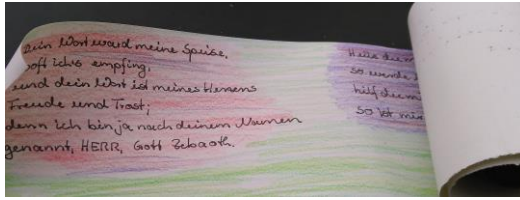 Dein Wort ward meine Speise,
sooft ichs empfing,
und dein Wort ist meines Herzens
Freude und Trost;
denn ich bin ja nach deinem Namen
genannt, HERR, Gott Zebaoth.
Heile du m
so werde i
hilf du mi
so ist mir